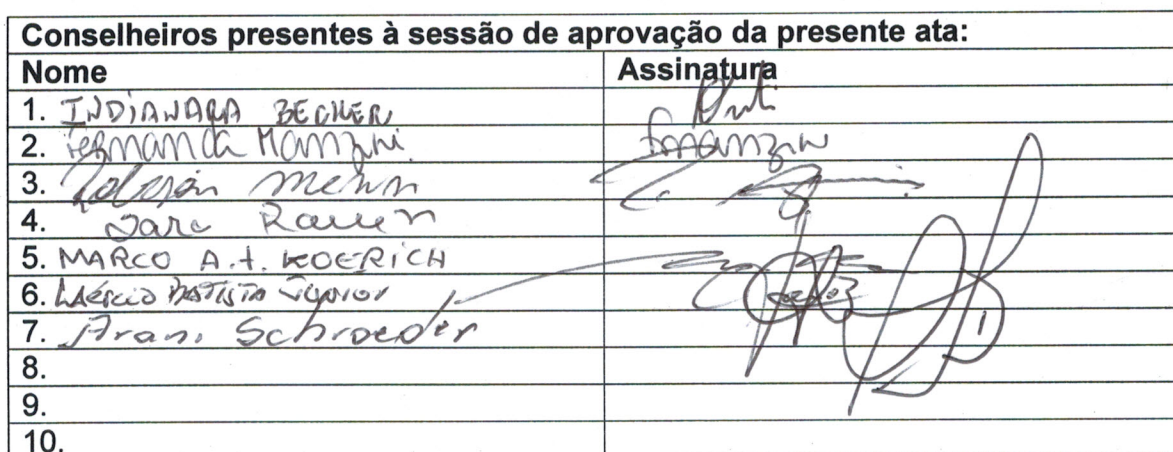 Conselheiros presentes à sessão de aprovação da presente ata:
Nome Assinatura
1. INDIANARA BECKER
2. Fernanda Manzini. FManzini
3. Robson
4. Iara Rauen
5. MARCO A. T. KOERICH
6. LAÉRCIO BATISTA JUNIOR
7. Arani Schroeder
8.
9.
10.